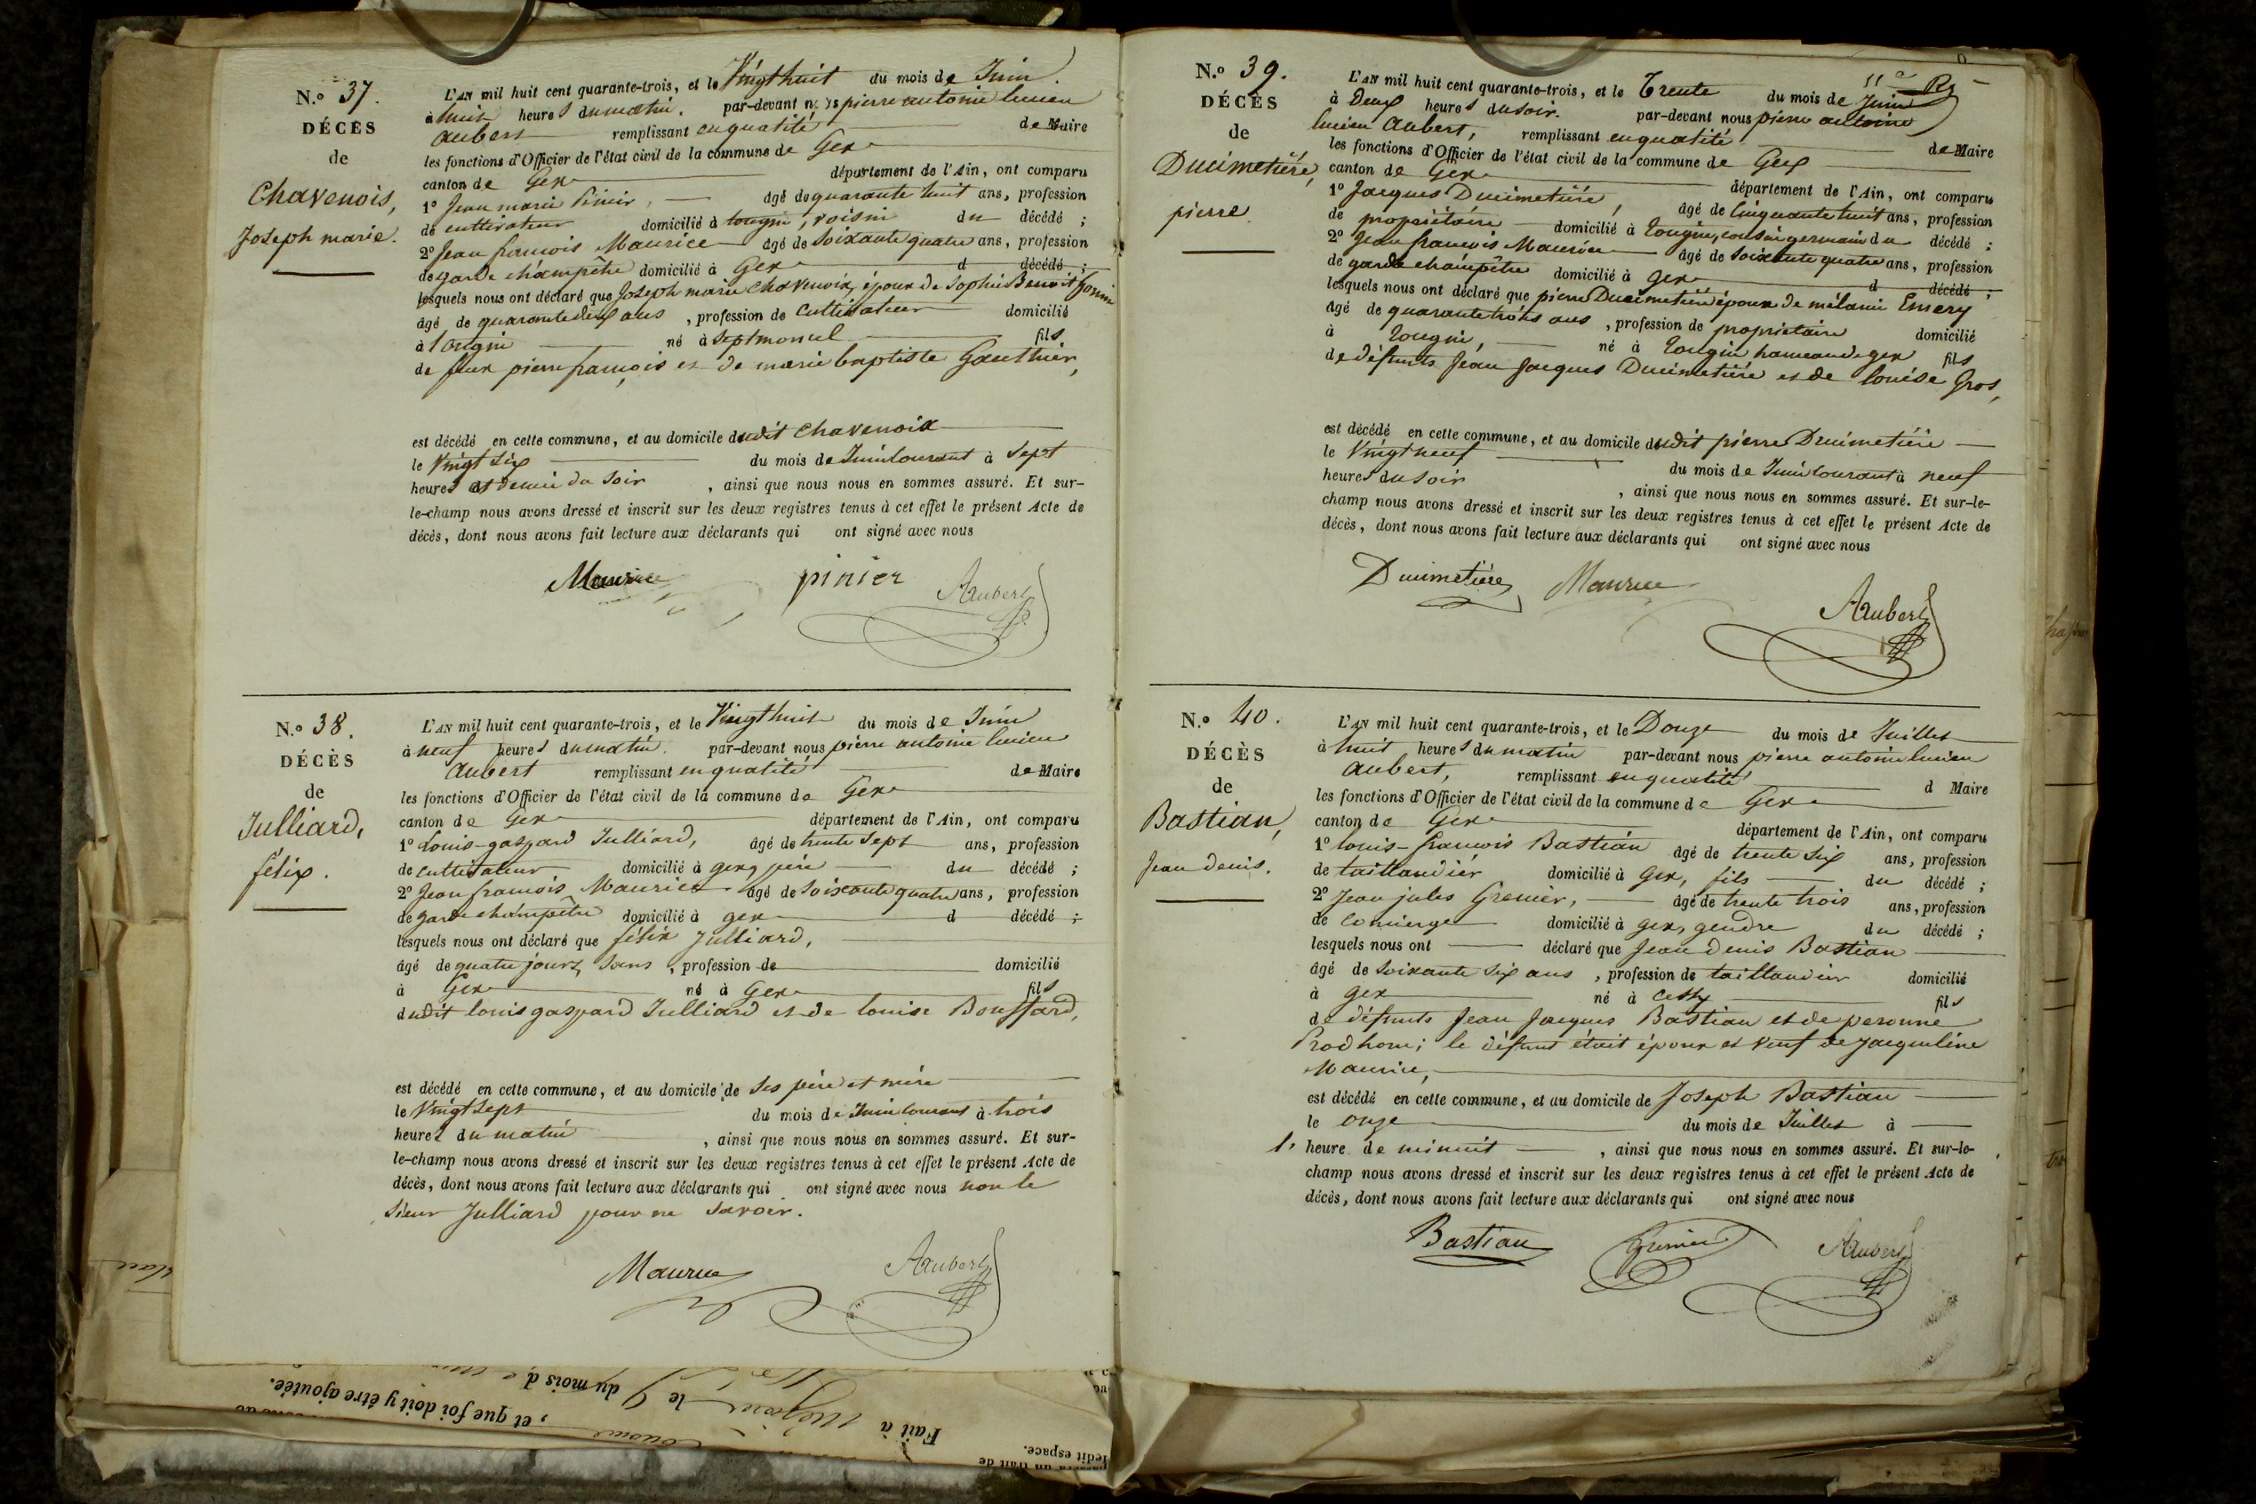 N.o 37.
DÉCÈS
de
Chavenois,
Joseph marie.
L'AN mil huit cent quarante-trois, et le Vingt huit du mois de Juin.
à huit heures du matin. par-devant nous pierre antoine lucien
Aubert remplissant en qualité de Maire
les fonctions d'Officier de l'état civil de la commune de Gex
canton de Gex département de l'Ain, ont comparu
1o Jean marie Pinier, âgé de quarante huit ans, profession
de cultivateur domicilié à tougin, voisin du décédé ;
2o Jean françois Maurice âgé de soixante quatre ans, profession
de garde champêtre domicilié à Gex d décédé ;
lesquels nous ont déclaré que Joseph marie Chavenoix, époux de Sophie Benoit
âgé de quarante deux ans , profession de cultivateur domicilié
à tougin né à septmoncel fils
de feux pierre françois et de marie baptiste Gauthier,
est décédé en cette commune, et au domicile dudit Chavenoix
le Vingt six du mois de Juin courant à sept
heures et demie du soir , ainsi que nous nous en sommes assuré. Et sur-
le-champ nous avons dressé et inscrit sur les deux registres tenus à cet effet le présent Acte de
décès, dont nous avons fait lecture aux déclarants qui ont signé avec nous
Maurice pinier Aubert
N.o 38.
DÉCÈS
de
Julliard,
félix.
L'AN mil huit cent quarante-trois, et le Vingt huit du mois de Juin
à neuf heures du matin. par-devant nous pierre antoine lucien
Aubert remplissant en qualité de Maire
les fonctions d'Officier de l'état civil de la commune de Gex
canton de Gex département de l'Ain, ont comparu
1o Louis-gaspard Julliard, âgé de trente sept ans, profession
de cultivateur domicilié à gex, père du décédé ;
2o Jean françois Maurice âgé de soixante quatre ans, profession
de garde champêtre domicilié à gex d décédé ;
lesquels nous ont déclaré que félix Julliard,
âgé de quatre jours, sans , profession de domicilié
à Gex né à Gex fils
dudit louis gaspard Julliard et de louise Bouffard,
est décédé en cette commune, et au domicile de ses père et mère
le Vingt sept du mois de Juin courant à trois
heures du matin , ainsi que nous nous en sommes assuré. Et sur-
le-champ nous avons dressé et inscrit sur les deux registres tenus à cet effet le présent Acte de
décès, dont nous avons fait lecture aux déclarants qui ont signé avec nous non le
sieur Julliard pour ne savoir.
Maurice Aubert
Fait à le du mois d
, et que foi doit y être ajoutée.
ledit espace.
N.o 39.
DÉCÈS
de
Ducimetière,
pierre.
L'AN mil huit cent quarante-trois, et le Trente du mois de Juin
à Deux heures du soir. par-devant nous pierre antoine
lucien Aubert, remplissant en qualité de Maire
les fonctions d'Officier de l'état civil de la commune de Gex
canton de Gex département de l'Ain, ont comparu
1o Jacques Ducimetière, âgé de cinquante huit ans, profession
de propriétaire domicilié à Tougin, cousin germain du décédé ;
2o Jean françois Maurice âgé de soixante quatre ans, profession
de garde champêtre domicilié à gex d décédé ;
lesquels nous ont déclaré que pierre Ducimetière époux de mélanie Emery
âgé de quarante trois ans , profession de propriétaire domicilié
à Tougin, né à Tougin hameau de gex fils
de défunts Jean Jacques Ducimetière et de louise Gros,
est décédé en cette commune, et au domicile dudit pierre Ducimetière
le Vingt neuf du mois de Juin courant à neuf
heures du soir , ainsi que nous nous en sommes assuré. Et sur-le-
champ nous avons dressé et inscrit sur les deux registres tenus à cet effet le présent Acte de
décès, dont nous avons fait lecture aux déclarants qui ont signé avec nous
Ducimetière Maurice Aubert
N.o 40.
DÉCÈS
de
Bastian,
Jean denis.
L'AN mil huit cent quarante-trois, et le Douze du mois de Juillet
à huit heures du matin par-devant nous pierre antoine lucien
Aubert, remplissant en qualité d Maire
les fonctions d'Officier de l'état civil de la commune de Gex
canton de Gex département de l'Ain, ont comparu
1o louis-françois Bastian âgé de trente six ans, profession
de taillandier domicilié à Gex, fils du décédé ;
2o Jean jules Grenier, âgé de trente trois ans, profession
de concierge domicilié à gex, gendre du décédé ;
lesquels nous ont déclaré que Jean Denis Bastian
âgé de soixante six ans , profession de taillandier domicilié
à gex né à Cessy fils
de défunts Jean Jacques Bastian et de peronne
Prodhom; le défunt était époux et veuf de Jacqueline
Maurice,
est décédé en cette commune, et au domicile de Joseph Bastian
le onze du mois de Juillet à
l' heure de minuit , ainsi que nous nous en sommes assuré. Et sur-le-
champ nous avons dressé et inscrit sur les deux registres tenus à cet effet le présent Acte de
décès, dont nous avons fait lecture aux déclarants qui ont signé avec nous
Bastian Grenier Aubert